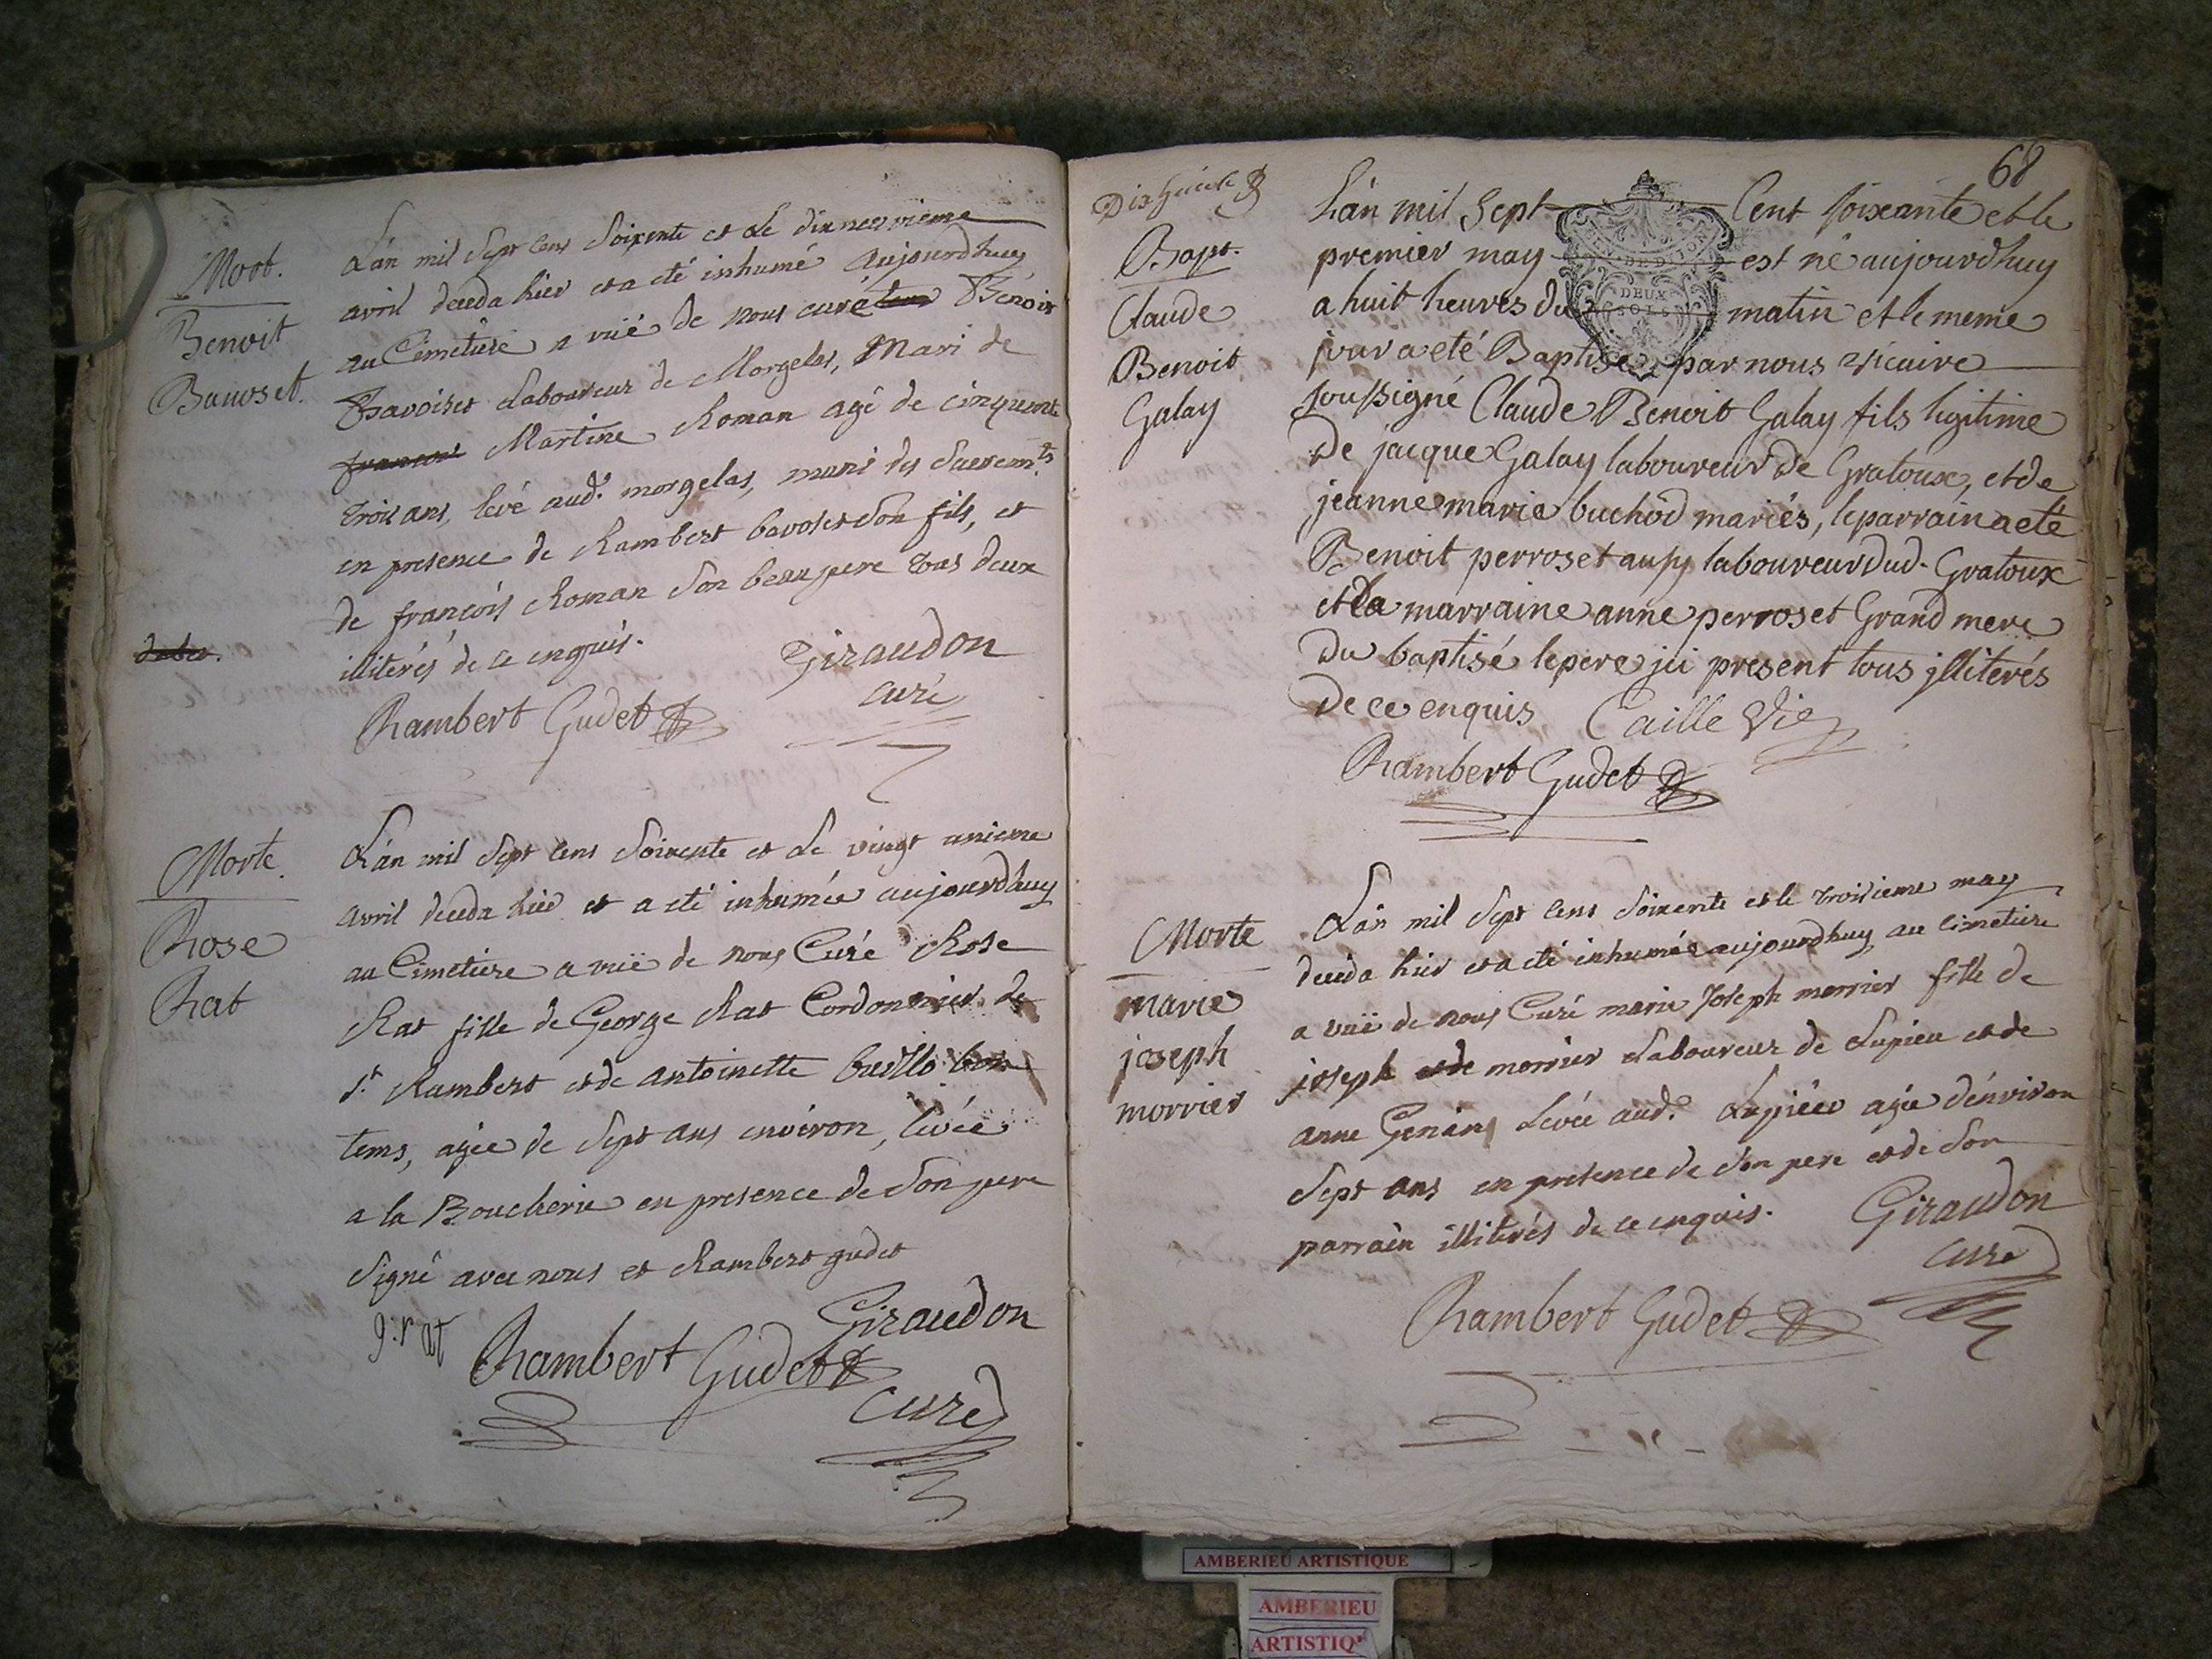 Mort.
Benoit
Bavoset.
L'an mil Sept Cens Soixente et Le dixneuvieme
avril deceda hier et a eté inhumé aujourdhuy
au Cimetiere a viië de nous curé Benoit
Bavoiset Laboureur de Morgelas, Mari de
francoise Martine Roman agé de cinquente
trois ans, levé aud.t morgelas, muni des Sacrem.ts
en presence de Rambert bavoset Son fils, et
de francois Roman Son beaupere tous deux
illiterés de ce enquis.
Giraudon
curé
Rambert Gudet
Morte.
Rose
Rat
L'an mil Sept Cens Soixente et Le vingt unieme
avril deceda hier et a eté inhumée aujourdhuy
au Cimetiere a viië de nous Curé Rose
Rat fille de George Rat Cordonnier de
S.t Rambert et de antoinette
tems, agée de Sept ans environ, levée
a la Boucherie en presence de Son pere
Signé avec nous et Rambert gudet
g. rat
Giraudon
Rambert Gudet
curé
68
Dixhuicte
Bapt.
Claude
Benoit
Galay
L'an mil Sept Cent soixante et le
premier may est né aujourdhuy
a huit heures du matin et le meme
jour a eté Baptisé par nous vicaire
soussigné Claude Benoit Galay fils legitime
de jacque Galay laboureur de Gratoux, et de
jeanne marie buchod mariés, le parrain a eté
Benoit perroset aussy laboureur dud. Gratoux
et la marraine anne perroset Grand mere
du baptisé le pere ici present tous jlliterés
de ce enquis
Caille Vic
Rambert Gudet
DEUX
SOLS
Morte
marie
joseph
morrier
L'an mil Sept Cens Soixente et le troisieme may
deceda hier et a eté inhumée aujourdhuy au cimetiere
a viië de nous Curé marie Joseph morrier fille de
joseph morrier Laboureur de Lupieu et de
anne Genin Levée aud.t Lupieu agée d'environ
Sept ans en presence de Son pere et de Son
parrain illiterés de ce enquis.
Giraudon
curé
Rambert Gudet
AMBERIEU ARTISTIQUE
AMBERIEU
ARTISTIQ'